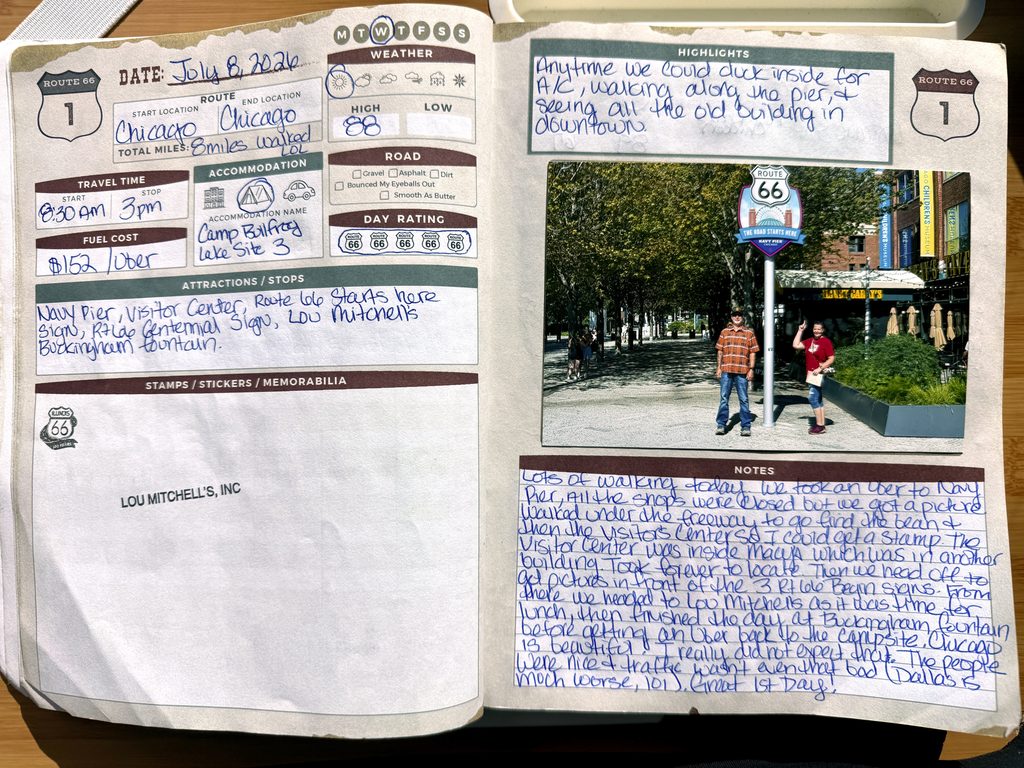 M T W T F S S
DATE: July 8, 2026
WEATHER
ROUTE 66
1
ROUTE
START LOCATION
END LOCATION
Chicago
Chicago
HIGH
LOW
88
TOTAL MILES: 8 miles walked
LOL
TRAVEL TIME
START
STOP
8:30 AM
3pm
FUEL COST
$152 / Uber
ACCOMMODATION
ACCOMMODATION NAME
Camp Bullfrog
Lake Site 3
ROAD
Gravel Asphalt Dirt
Bounced My Eyeballs Out
Smooth As Butter
DAY RATING
ROUTE 66 ROUTE 66 ROUTE 66 ROUTE 66 ROUTE 66
ATTRACTIONS / STOPS
Navy Pier, Visitor Center, Route 66 Starts here
Sign, Rt 66 Centennial Sign, Lou Mitchells
Buckingham fountain.
STAMPS / STICKERS / MEMORABILIA
ILLINOIS
66
LOU MITCHELL'S, INC
HIGHLIGHTS
Anytime we could duck inside for
A/C, walking along the pier, &
seeing all the old building in
downtown.
ROUTE 66
1
ROUTE
66
THE ROAD STARTS HERE
NAVY PIER
CHILDREN'S MUSEUM
NOTES
Lots of walking today. We took an Uber to Navy
Pier, All the shops were closed but we got a picture
walked under the freeway to go find the bean &
then the Visitors Center so I could get a stamp. The
Visitor Center was inside Macys which was in another
building. Took forever to locate. Then we head off to
get pictures in front of the 3 Rt 66 Begin signs. From
there we headed to Lou Mitchells as it was time for
lunch, then finished the day at Buckingham Fountain
before getting an Uber back to the campsite. Chicago
is beautiful! I really did not expect that. The people
were nice & traffic wasn't even that bad (Dallas is
much worse, lol). Great 1st Day!